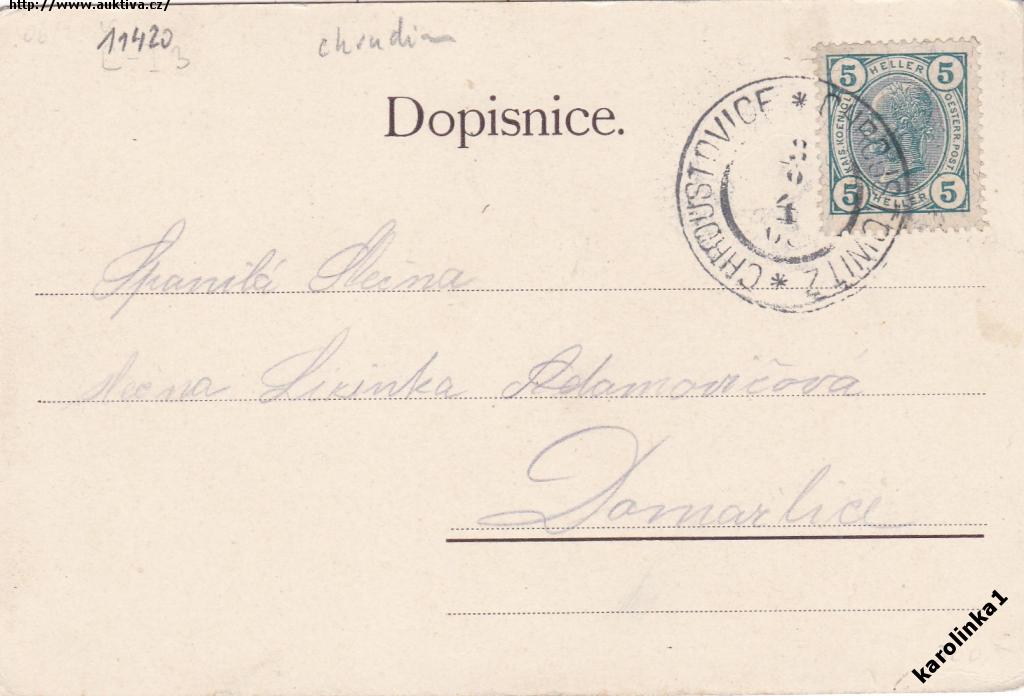 http://www.auktiva.cz/
11420
chrudim
Dopisnice.
5 HELLER 5
KAIS.KOENIGL. OESTERR.POST.
5 HELLER 5
CHROUSTOVICE * CHROUSTOWITZ *
Spanilá Slečna
Slečna Adamovičová
karolinka1